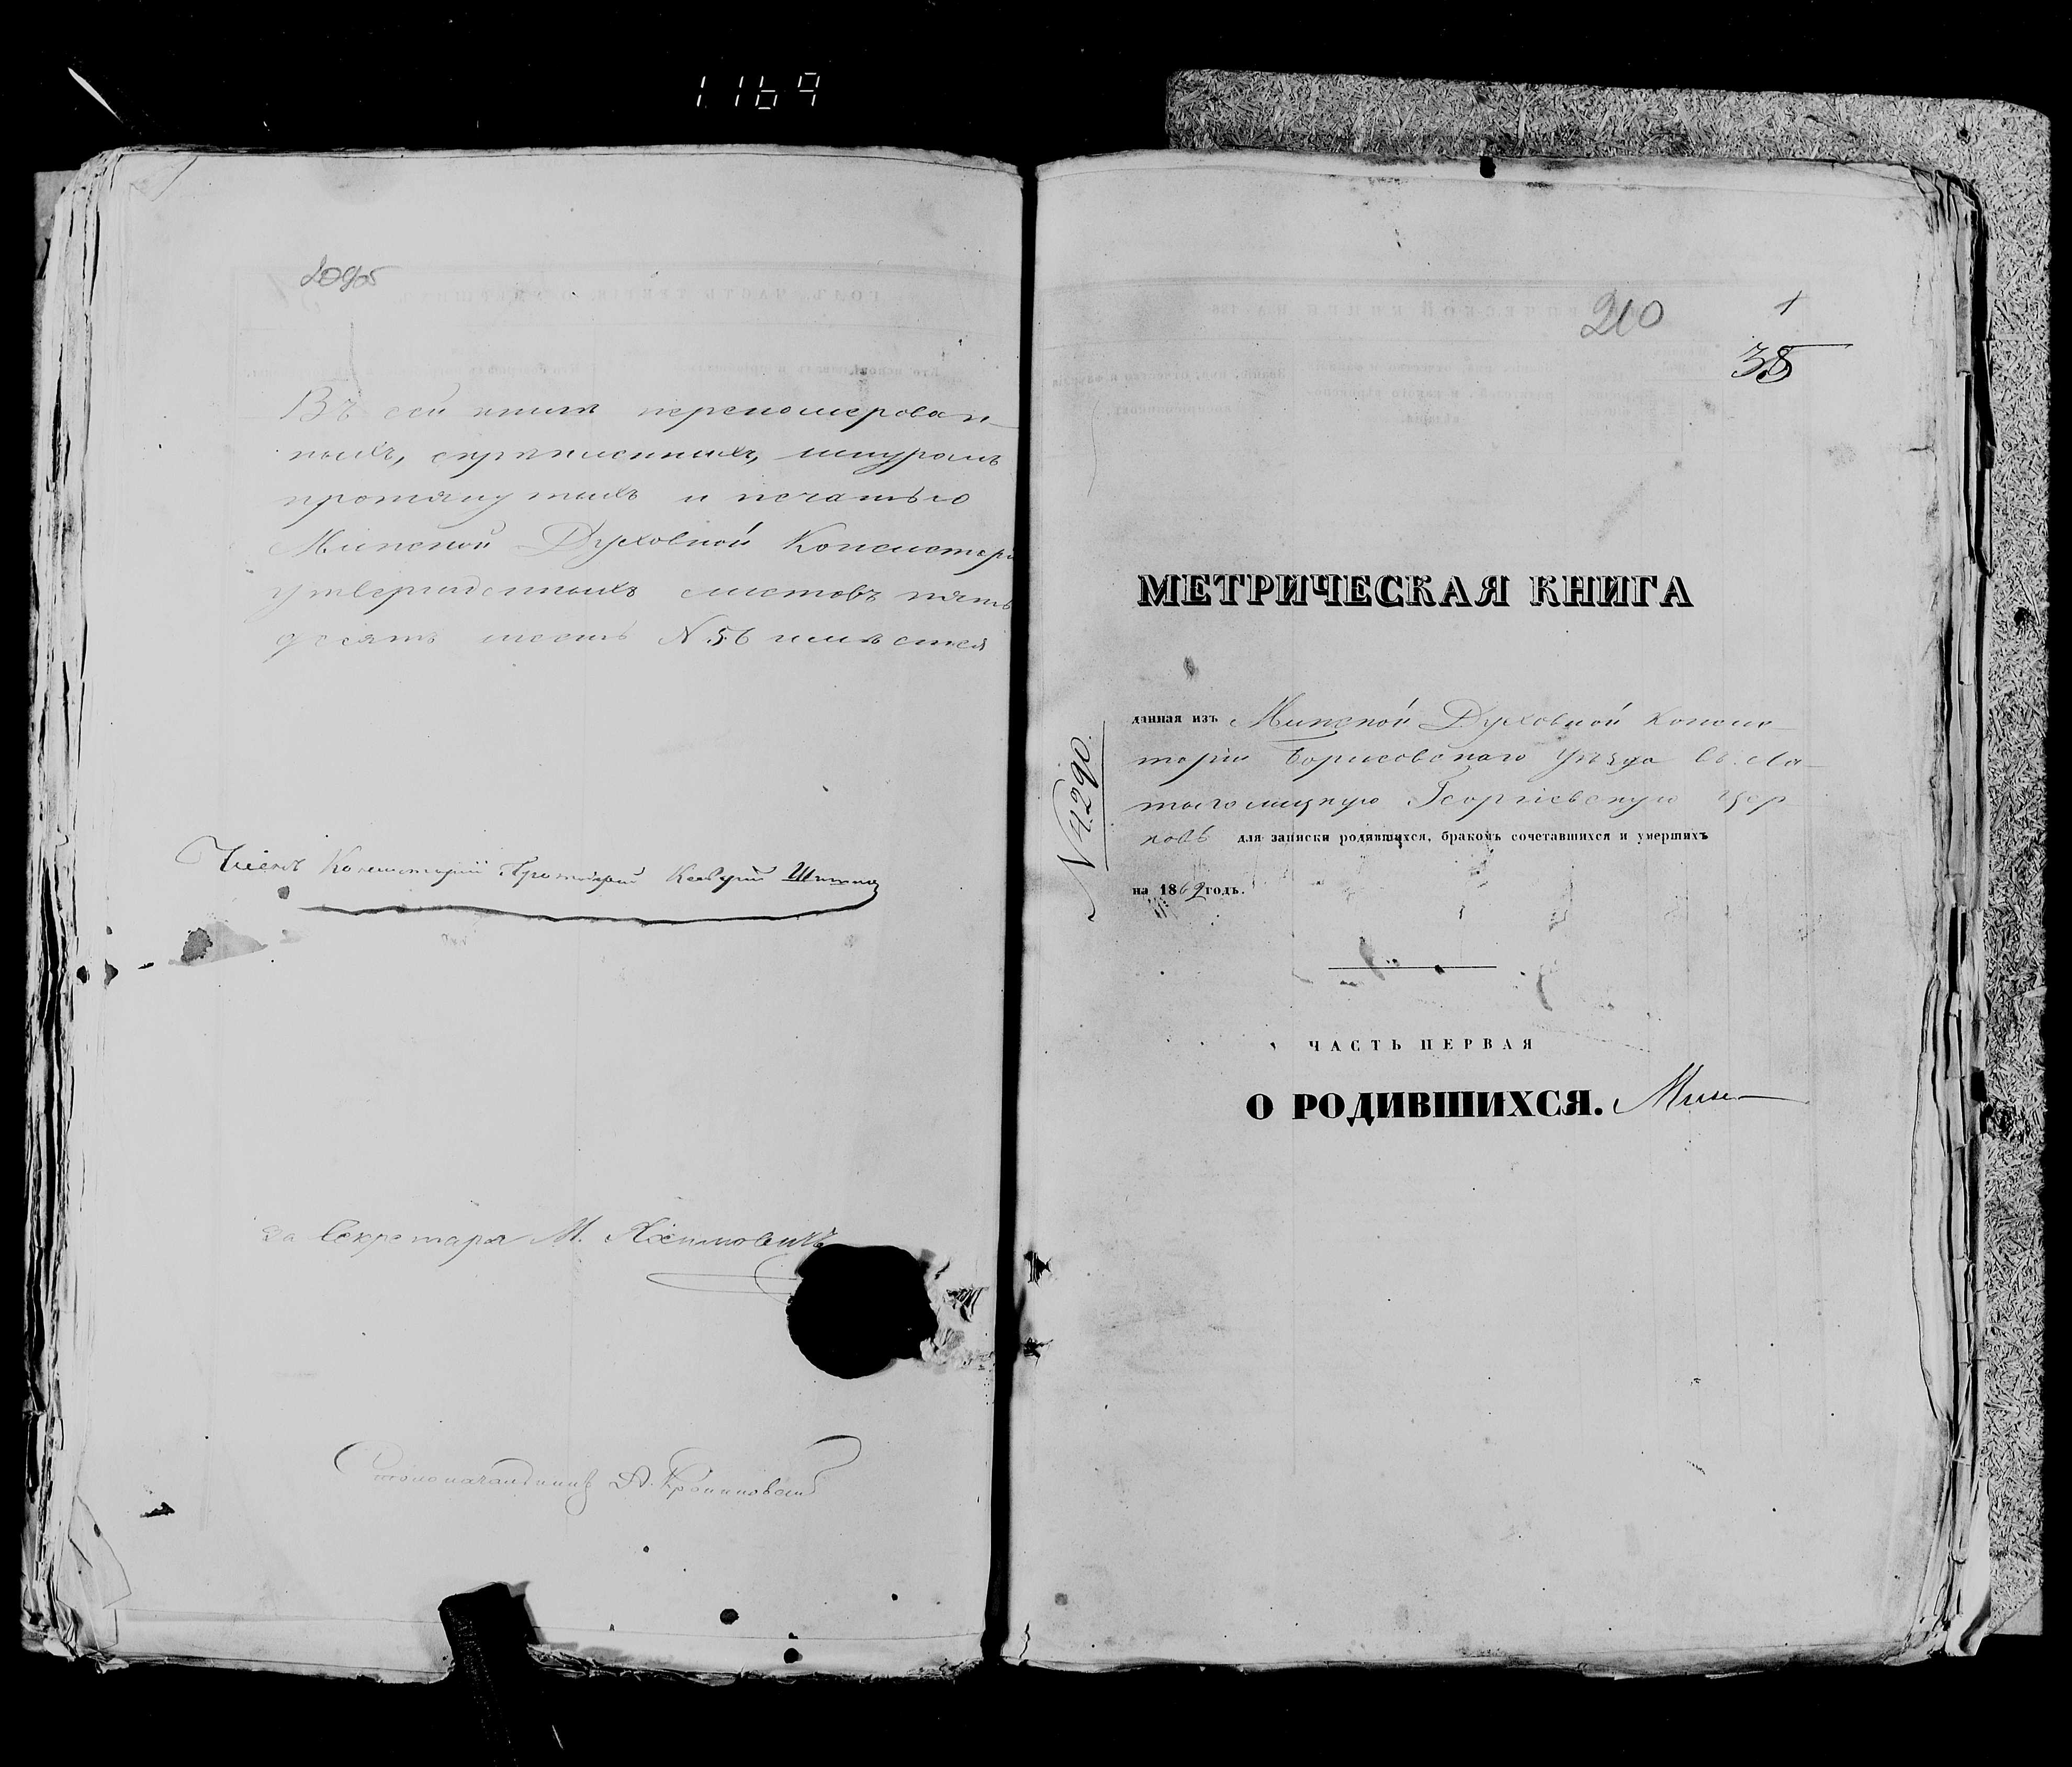 1169
209об
Въ сей книгѣ переномерован-
ныхъ, скрѣпленныхъ, шнуромъ
протянутыхъ и печатью
Минской Духовной Консисторіи
утвержденныхъ листовъ пять
десятъ шесть N. 56 имѣется
Членъ Консисторіи Протоіерей
За Секретаря М.
Столоначальникъ А.
210
1
38
МЕТРИЧЕСКАЯ КНИГА
данная изъ Минской Духовной Консис-
торіи Борисовскаго Уѣзда въ Ла-
тыголицкую Георгіевскую Цер
ковь для записки родившихся, бракомъ сочетавшихся и умершихъ
на 1862 годъ.
N 4290.
ЧАСТЬ ПЕРВАЯ
О РОДИВШИХСЯ. Мин